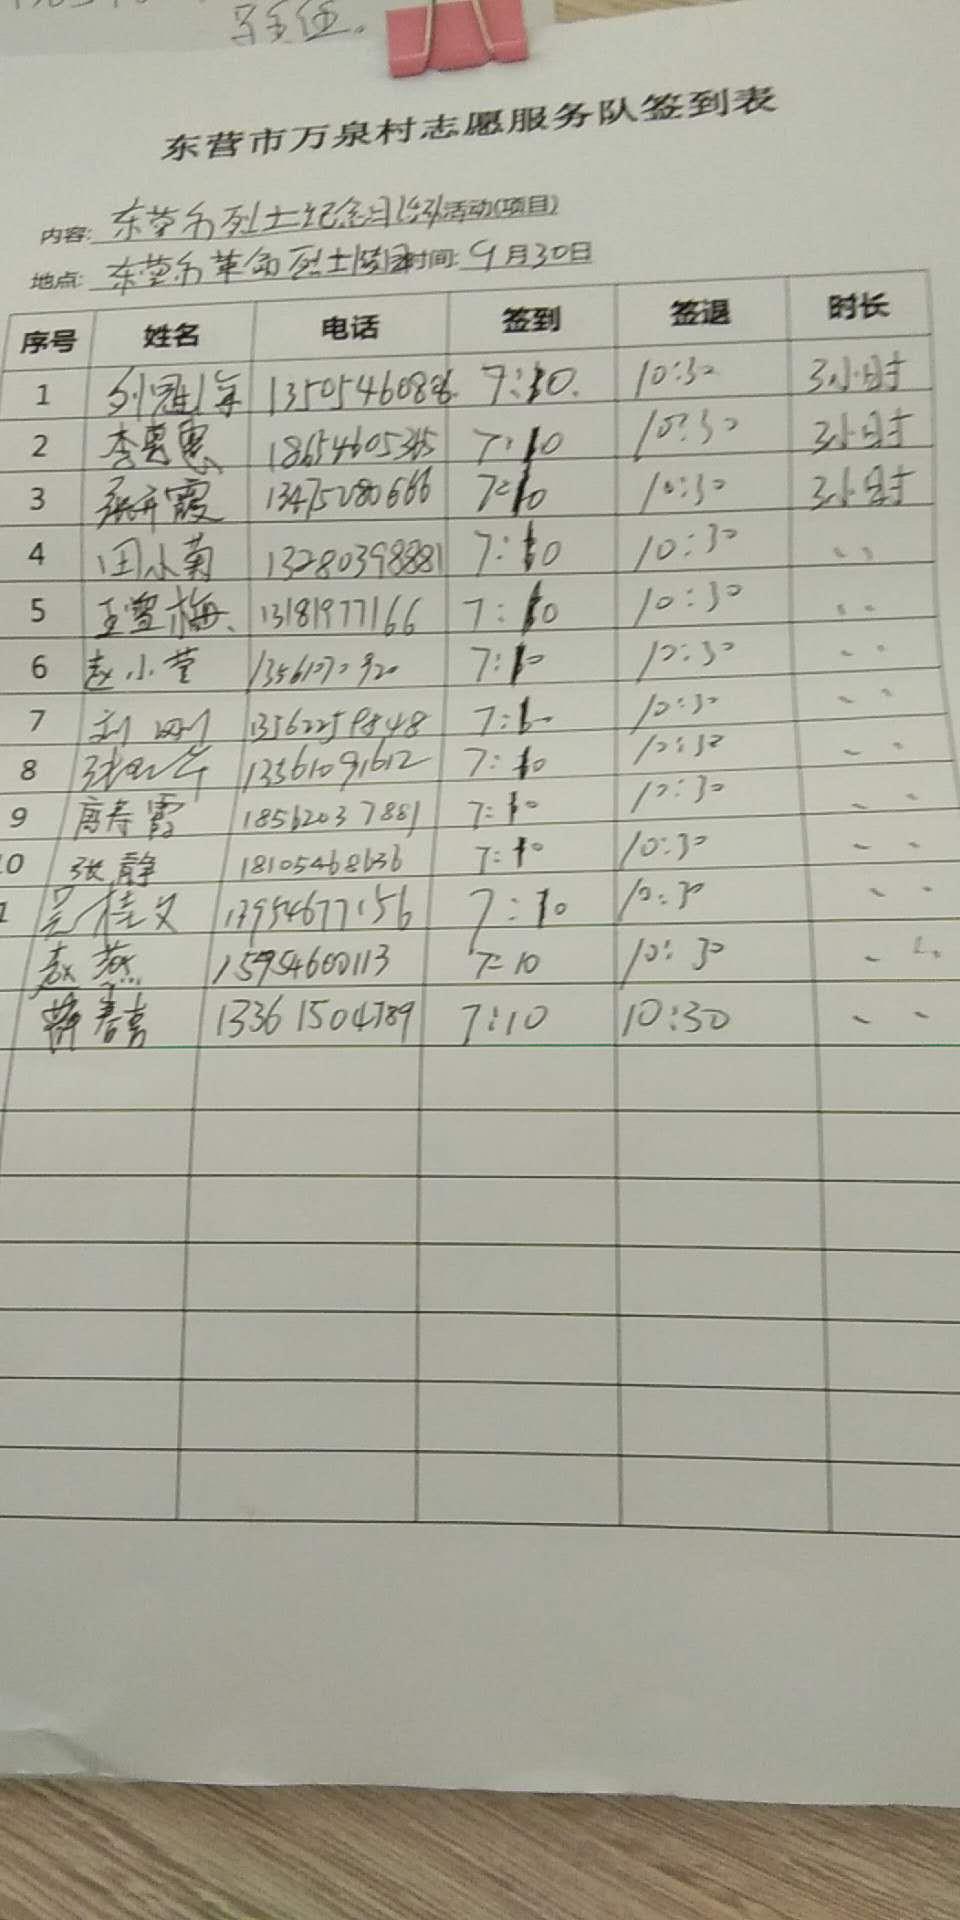 主任。
东营市万泉村志愿服务队签到表
内容: 东营市烈士纪念日 活动(项目)
地点: 东营市革命烈士陵园 时间: 9月30日
序号 姓名 电话 签到 签退 时长
1 7:10. 10:30 3小时
2 李 惠 18654605345 7:10 10:30 3小时
3 霞 13475280666 7:10 10:30 3小时
4 田小菊 13280398881 7:10 10:30 〃
5 王雪梅. 13181977166 7:10 10:30 〃
6 赵小莹 7:10 10:30 〃
7 刘刚 13562259848 7:10 10:30 〃
8 张 13561091612 7:10 10:30 〃
9 唐寿霞 18562037881 7:10 10:30 〃
0 张静 18105468636 7:10 10:30 〃
1 吴桂义 13954677156 7:10 10:30 〃
赵燕 15954600113 7:10 10:30 〃
13361504789 7:10 10:30 〃